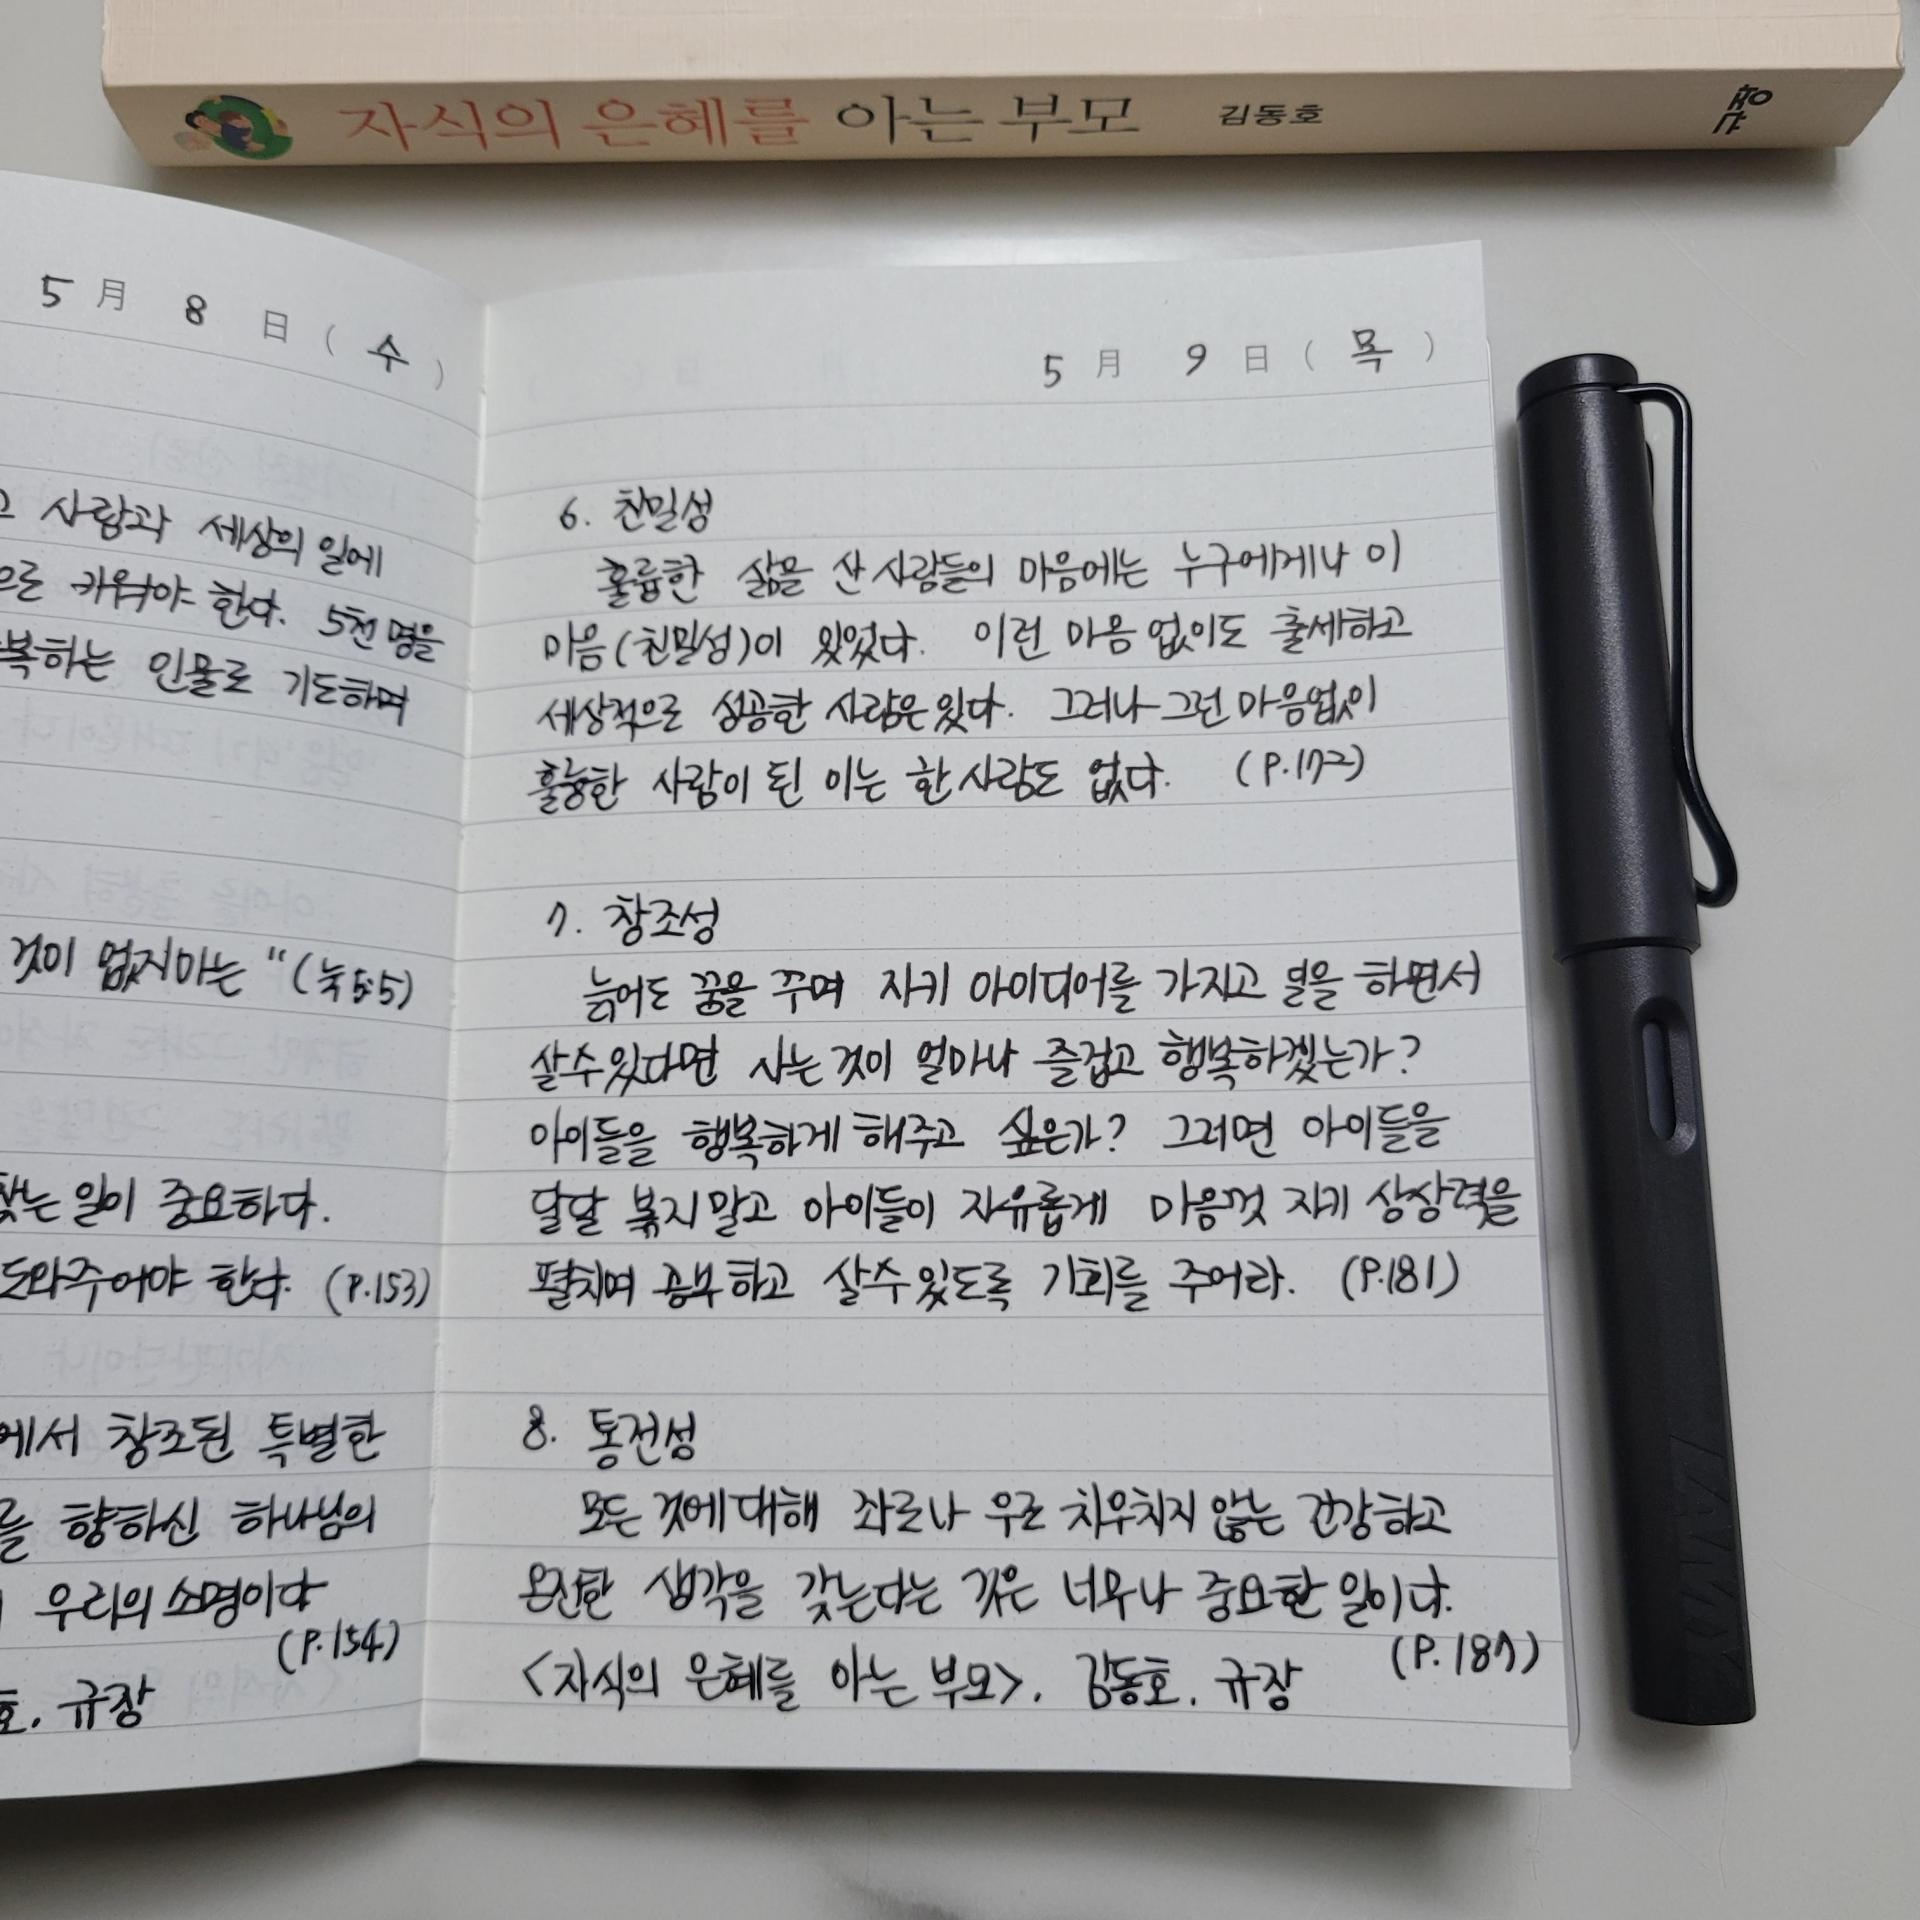 자식의 은혜를 아는 부모 김동호 규장
5月 8日(수)
사람과 세상의 일에
으로 키워야 한다. 5천 명을
복하는 인물로 기도하며
것이 없지마는"(눅5:5)
찾는 일이 중요하다.
도와주어야 한다. (P.153)
에서 창조된 특별한
를 향하신 하나님의
우리의 소명이다
(P.154)
호. 규장
5月 9日(목)
6. 친밀성
훌륭한 삶을 산 사람들의 마음에는 누구에게나 이
마음(친밀성)이 있었다. 이런 마음 없이도 출세하고
세상적으로 성공한 사람은 있다. 그러나 그런 마음없이
훌륭한 사람이 된 이는 한 사람도 없다. (P.172)
7. 창조성
늙어도 꿈을 꾸며 자기 아이디어를 가지고 일을 하면서
살수있다면 사는 것이 얼마나 즐겁고 행복하겠는가?
아이들을 행복하게 해주고 싶은가? 그러면 아이들을
달달 볶지말고 아이들이 자유롭게 마음껏 자기 상상력을
펼치며 공부하고 살수있도록 기회를 주어라. (P.181)
8. 통전성
모든 것에 대해 좌로나 우로 치우치지 않는 건강하고
온전한 생각을 갖는다는 것은 너무나 중요한 일이다.
(P.187)
<자식의 은혜를 아는 부모>, 김동호. 규장
LAMY